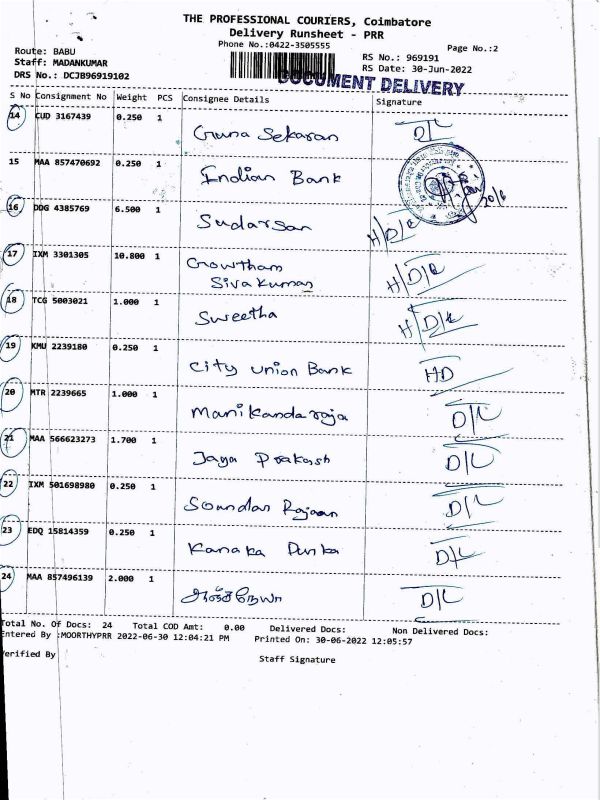 THE PROFESSIONAL COURIERS, Coimbatore
Delivery Runsheet - PRR
Phone No.:0422-3505555
Page No.:2
Route: BABU
Staff: MADANKUMAR
DRS No.: DCJB96919102
RS No.: 969191
RS Date: 30-Jun-2022
DOCUMENT DELIVERY
S No Consignment No Weight PCS Consignee Details Signature
14 CUD 3167439 0.250 1 Guna Sekaran D/L
15 MAA 857470692 0.250 1 Indian Bank
16 DDG 4385769 6.500 1 Sudarsan H/D/L
17 IXM 3301305 10.800 1 Gowtham
Sivakumar H/D/L
18 TCG 5003021 1.000 1 Swetha H/D/L
19 KMU 2239180 0.250 1 City Union Bank HD
20 MTR 2239665 1.000 1 Manikanda raja D/L
21 MAA 566623273 1.700 1 Jaya Prakash D/L
22 IXM 501698980 0.250 1 Soundar Rajaan D/L
23 EDQ 15814359 0.250 1 Kanaka D/L
24 MAA 857496139 2.000 1 ஆஞ்சநேயா D/L
Total No. Of Docs: 24 Total COD Amt: 0.00 Delivered Docs: Non Delivered Docs:
Entered By :MOORTHYPRR 2022-06-30 12:04:21 PM Printed On: 30-06-2022 12:05:57
Verified By
Staff Signature